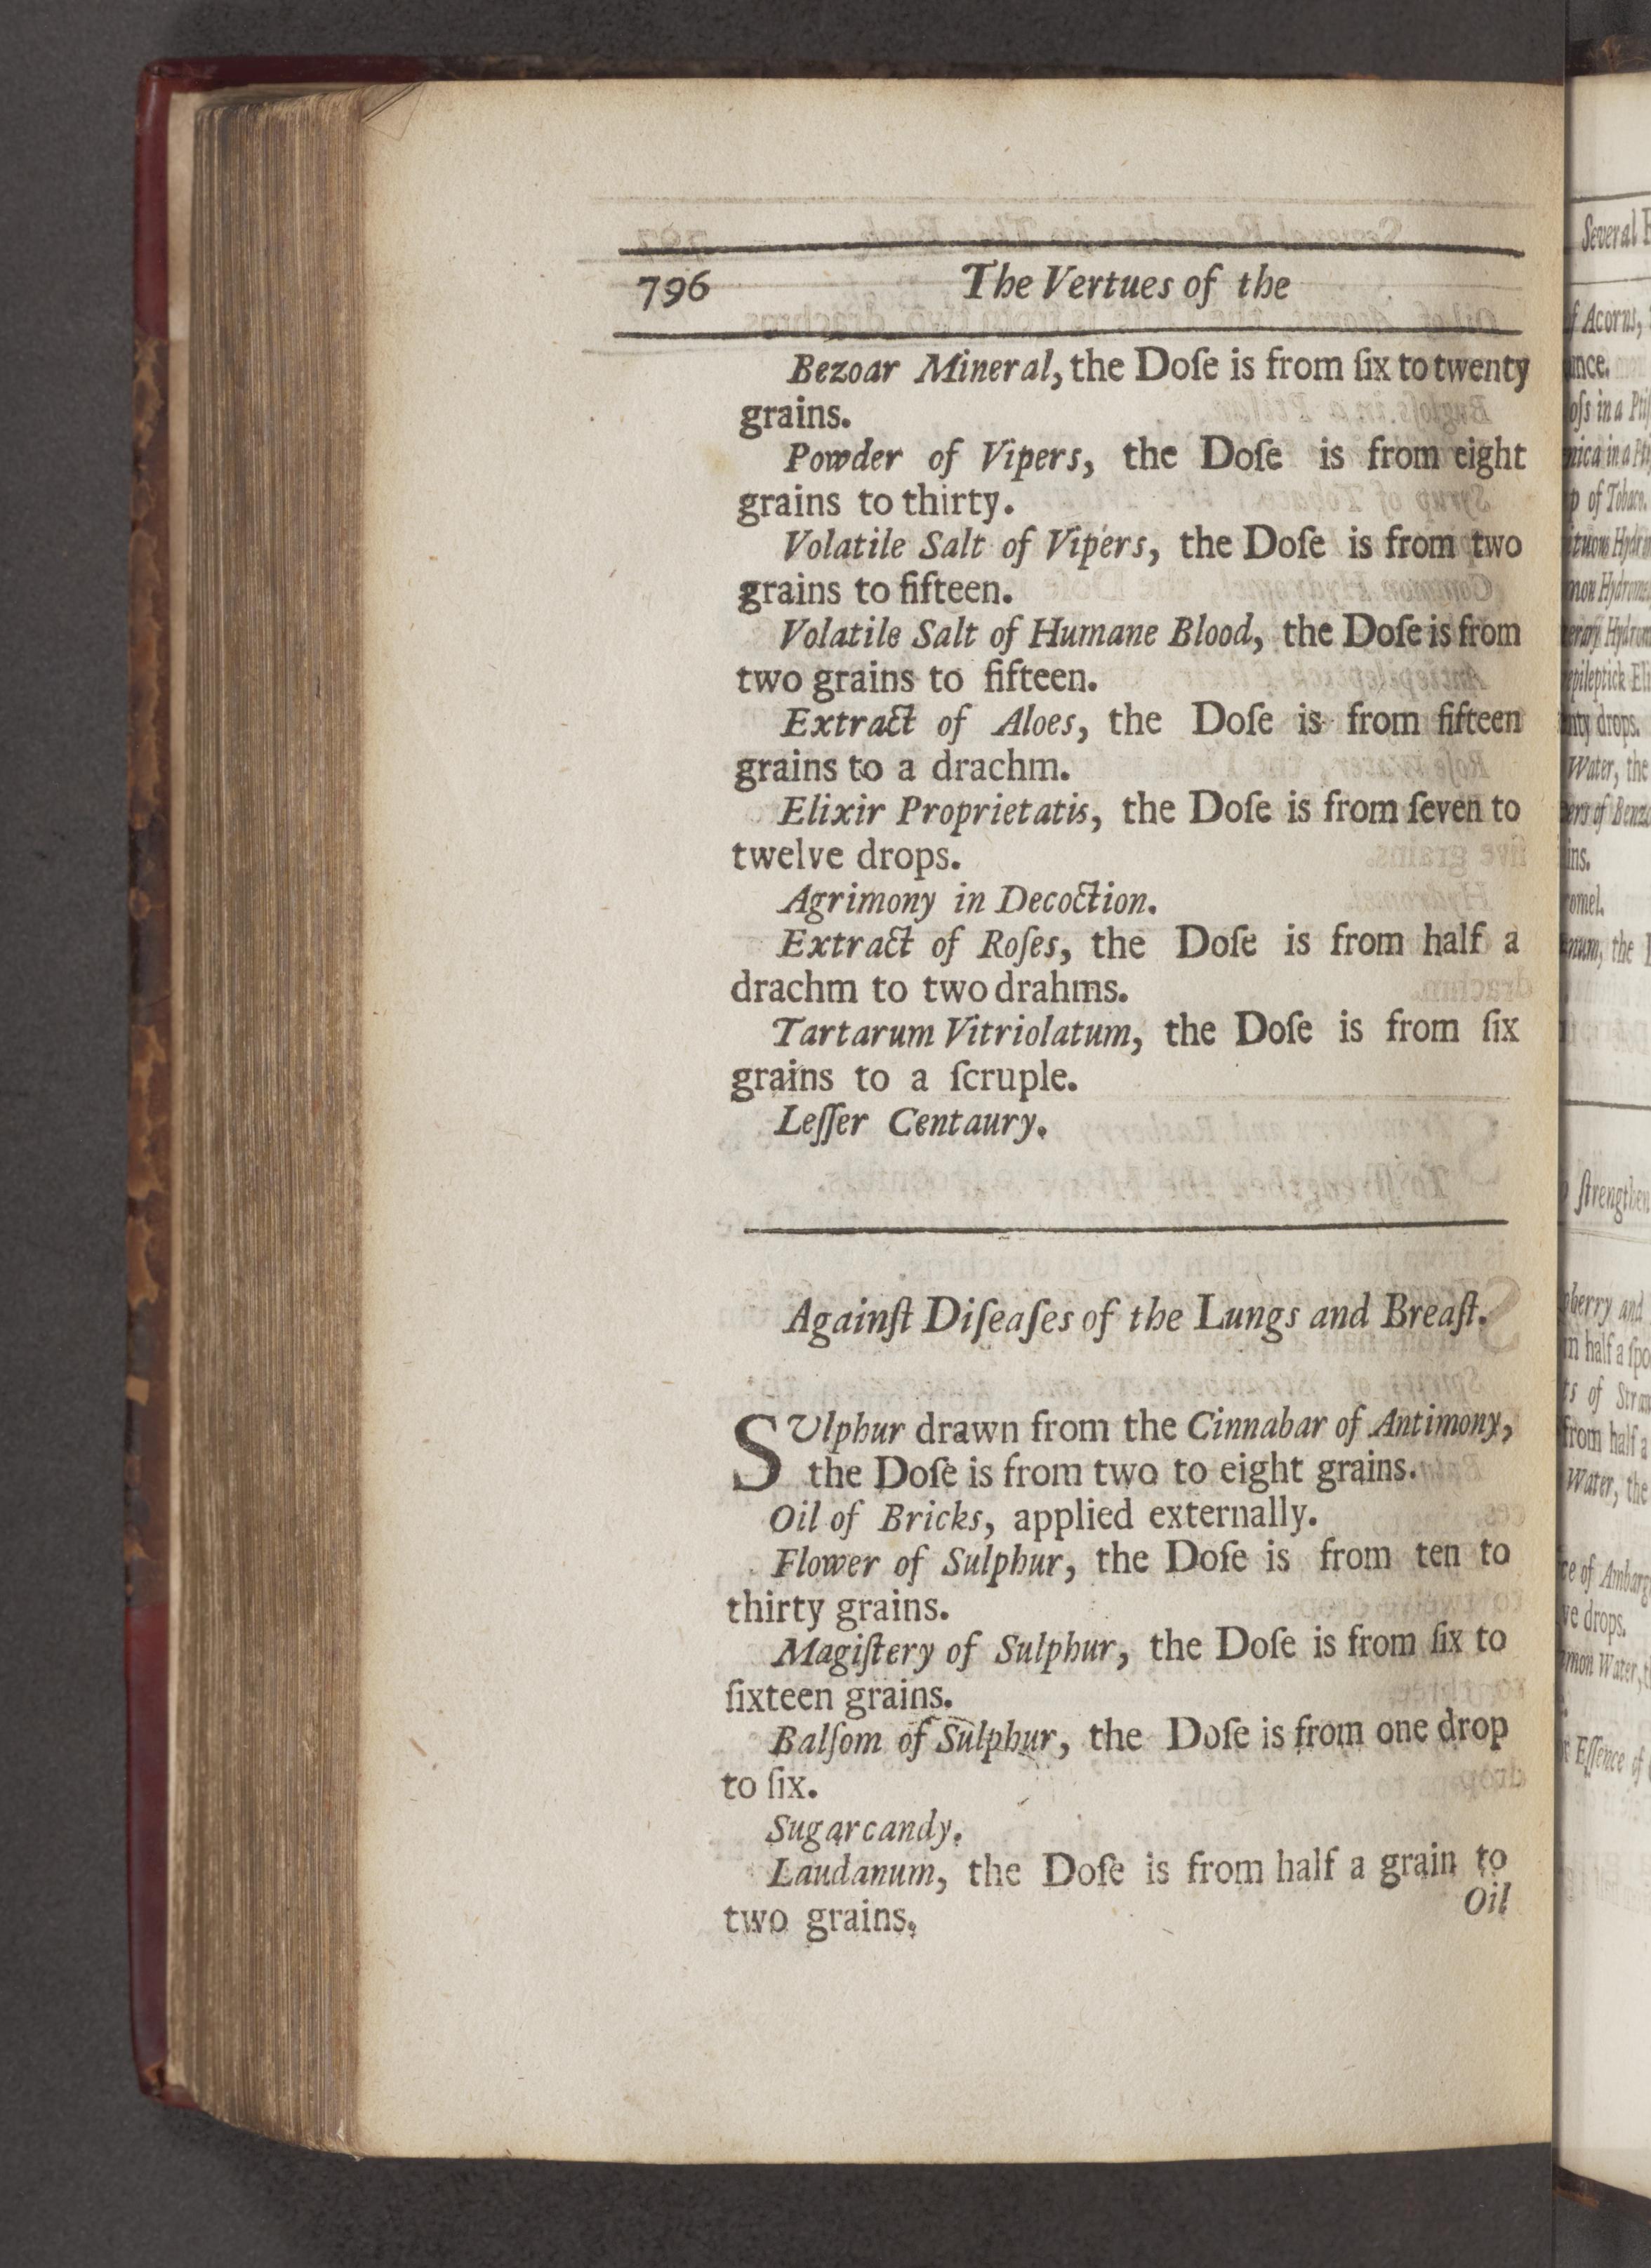 796 The Vertues of the
Bezoar Mineral, the Doſe is from ſix to twenty
grains.
Powder of Vipers, the Doſe is from eight
grains to thirty.
Volatile Salt of Vipers, the Doſe is from two
grains to fifteen.
Volatile Salt of Humane Blood, the Doſe is from
two grains to fifteen.
Extract of Aloes, the Doſe is from fifteen
grains to a drachm.
Elixir Proprietatis, the Doſe is from ſeven to
twelve drops.
Agrimony in Decoction.
Extract of Roſes, the Doſe is from half a
drachm to two drahms.
Tartarum Vitriolatum, the Doſe is from ſix
grains to a ſcruple.
Leſſer Centaury.
Againſt Diſeaſes of the Lungs and Breaſt.
SUlphur drawn from the Cinnabar of Antimony,
the Doſe is from two to eight grains.
Oil of Bricks, applied externally.
Flower of Sulphur, the Doſe is from ten to
thirty grains.
Magiſtery of Sulphur, the Doſe is from ſix to
ſixteen grains.
Balſom of Sulphur, the Doſe is from one drop
to ſix.
Sugarcandy.
Laudanum, the Doſe is from half a grain to
two grains.
Oil
Several
Acorns,
in a
of
drops.
Water, the
of
the
and
half a
of
from half a
Water, the
of
drops.
Water,
Eſſence of